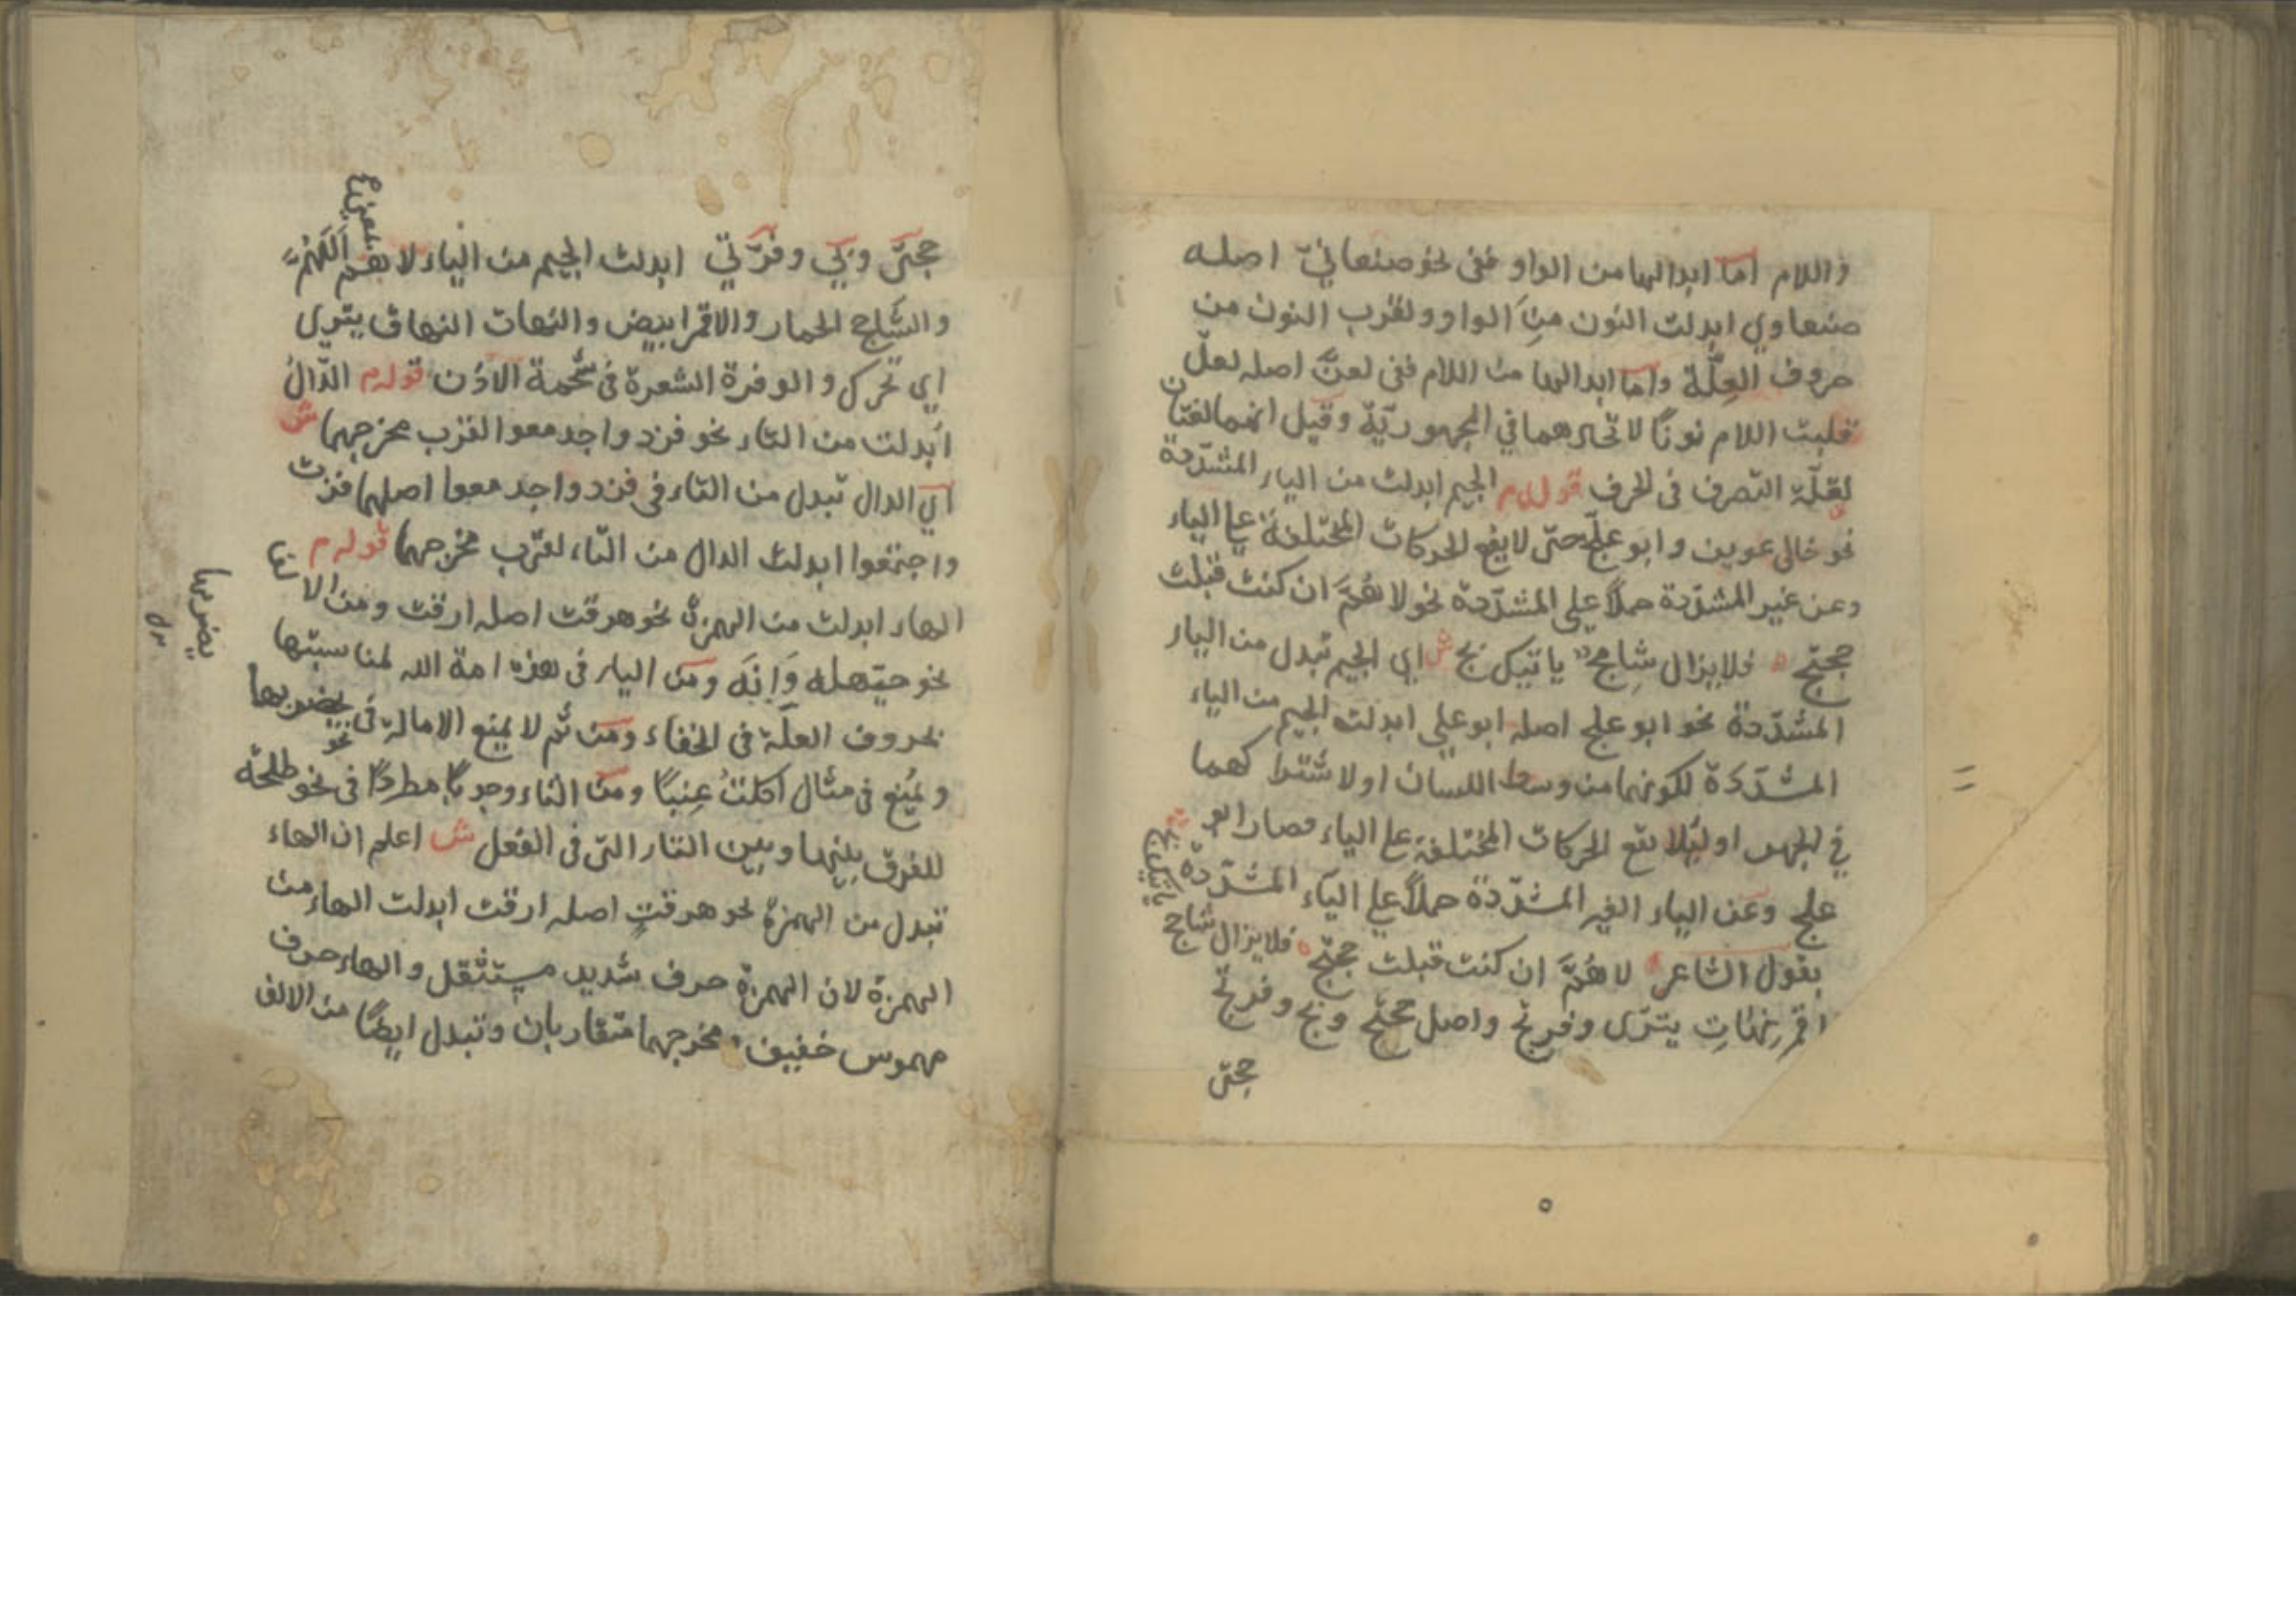 واللام اما ابدالها من الواو ففى نحو صنعانيّ اصله
صنعاوي ابدلت النون منَ الواو ولقرب النون من
حروف العِلّة واما ابدالها من اللام ففى لعنّ اصله لعلّ
فلبت اللام نونًا لاتحادهما في المجهوريّة وقيل انهما لغتان
لقلّة التصرف فى الحرف قوله م الجيم ابدلت من الياء المشدّدة
نحو خالى عوين وابو علجّ حتى لا يقع الحركات المختلفة على الياء
وعن غير المشدّدة حملاً على المشدّدة نحو لا هُمَّ ان كنت قبلت
حجتج فلا يزال شاجج ياتيك بج ش اى الجيم تبدل من الياء
المشدّدة نحو ابو علج اصله ابو على ابدلت الجيم من الياء
المشدّدة لكونهما من وسط اللسان او لاشتراكهما
في الجهر او لئلا يقع الحركات المختلفة على الياء فصار ابو
علج وعن الياء الغير المشدّدة حملاً على الياء المشدّدة
بقول الشاعر لا هُمَّ ان كنت قبلت حجتج فلا يزال شاجج
ياتيك بج
اقمر نهّاتِ يتزى وفرتج واصل حجتج وبج وفرتج
حجتى
حجتى وبي وفرّتي ابدلت الجيم من الياء لا هم اَللّهُمّ
يعنى
والشاجج الحمار والاقمر ابيض والنهات النهاق يتزى
اي تحرك والوفرة الشعرة فى شحمة الاذن قوله م الدّالُ
اُبدلت من التاء نحو فزد واجدمعوا لقرب مخرجهما ش
اي الدال تبدل من التاء فى فزد واجدمعوا اصلهما فزت
واجتمعوا ابدلت الدال من التاء لقرب مخرجهما قوله م
الهاء ابدلت من الهمزة نحو هرقت اصله ارقت ومن الالف
نحو حيّهله وَاِنَهْ ومن الياء فى هذه امة الله لمناسبتها
بحروف العلّة فى الخفاء ومن ثَم لا يمنع الامالة فى نحو يضربها
يضربها
ويُمنع فى مثال اكلتُ عِنبًا ومن التاء وجوبًا مطردًا فى نحو طلحة
للفرق بينها وبين التاء التى فى الفعل ش اعلم ان الهاء
تبدل من الهمزة نحو هرقت اصله ارقت ابدلت الهاء من
الهمزة لان الهمزة حرف شديد مستثقل والهاء حرف
مهموس خفيف ومخرجهما متقاربان وتبدل ايضًا من الالف